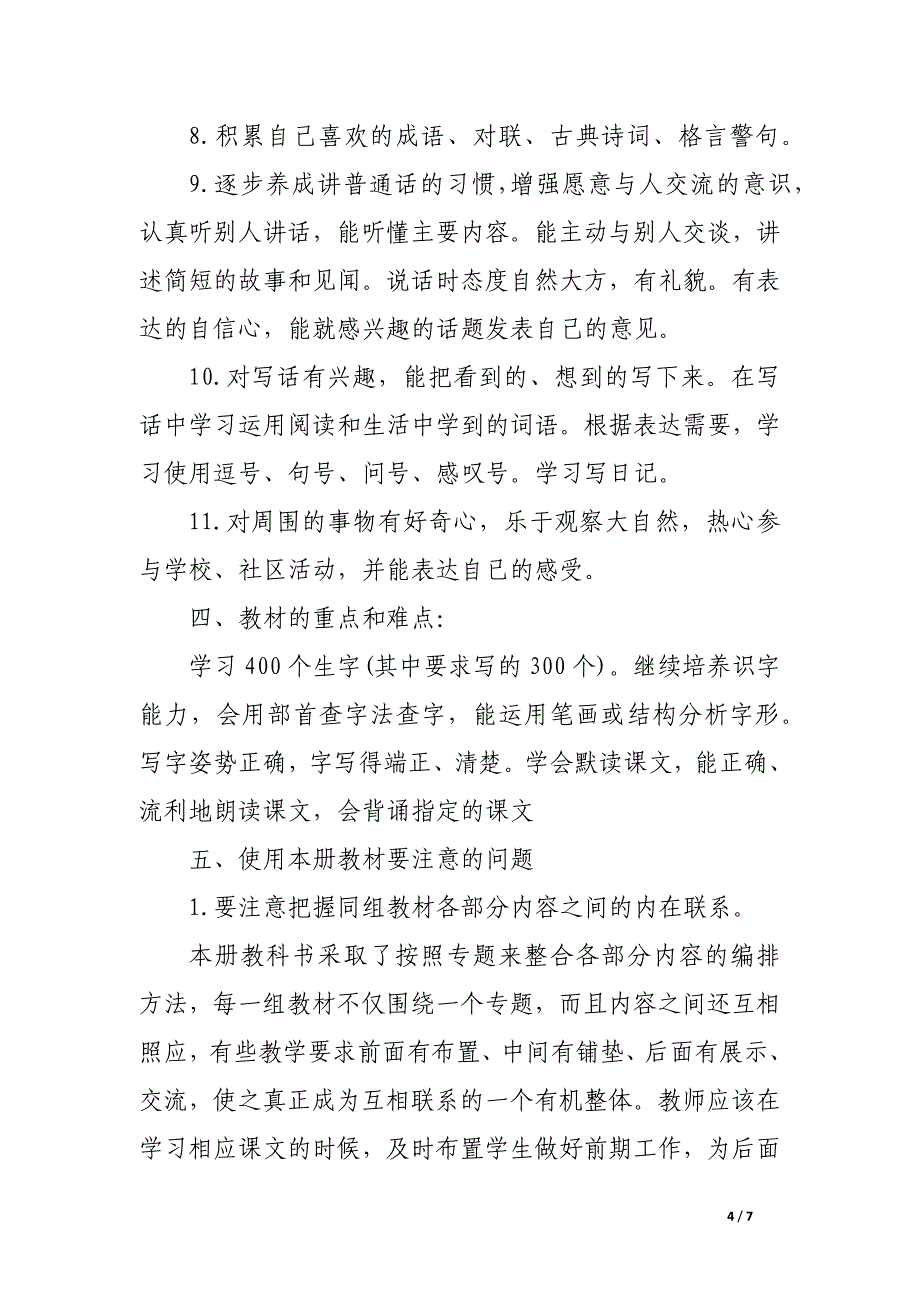 8.积累自己喜欢的成语、对联、古典诗词、格言警句。
9.逐步养成讲普通话的习惯,增强愿意与人交流的意识,
认真听别人讲话，能听懂主要内容。能主动与别人交谈，讲
述简短的故事和见闻。说话时态度自然大方，有礼貌。有表
达的自信心，能就感兴趣的话题发表自己的意见。
10.对写话有兴趣，能把看到的、想到的写下来。在写
话中学习运用阅读和生活中学到的词语。根据表达需要，学
习使用逗号、句号、问号、感叹号。学习写日记。
11.对周围的事物有好奇心，乐于观察大自然，热心参
与学校、社区活动，并能表达自己的感受。
四、教材的重点和难点：
学习400个生字(其中要求写的300个)。继续培养识字
能力，会用部首查字法查字，能运用笔画或结构分析字形。
写字姿势正确，字写得端正、清楚。学会默读课文，能正确、
流利地朗读课文，会背诵指定的课文
五、使用本册教材要注意的问题
1.要注意把握同组教材各部分内容之间的内在联系。
本册教科书采取了按照专题来整合各部分内容的编排
方法，每一组教材不仅围绕一个专题，而且内容之间还互相
照应，有些教学要求前面有布置、中间有铺垫、后面有展示、
交流，使之真正成为互相联系的一个有机整体。教师应该在
学习相应课文的时候，及时布置学生做好前期工作，为后面
4 / 7